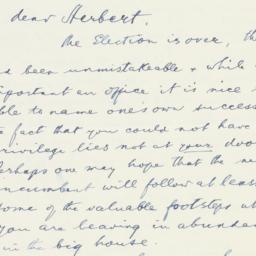 dear Herbert.
The Election is over, th
been unmistakeable & while
important an office it is nice
ble to name one's own success
fact that you could not have
rivilege lies not at your doo
Perhaps one may hope that the ne
ncumbent will follow at leas
some of the valuable footsteps
you are leaving in abundan
in the big house.